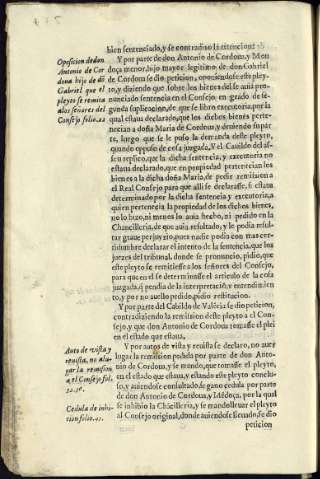 bien sentenciado, y se contradixo la retencion.
Oposicion de don
Antonio de Cor
doua hijo de dõ
Gabriel que el
pleyto se remita
a los señores del
Consejo folio.
Y por parte de don Antonio de Cordoua, y Men
doça menor, hijo mayor legitimo de don Gabriel
de Cordoua se dio peticion, oponiendose este pley-
to, y diziendo que sobre los bienes del se auia pro-
nunciado sentencia en el Consejo en grado de se-
gunda suplicacion, de que se libro executoria, por la
qual estaua declarado, que los dichos bienes perte-
necian a doña Maria de Cordoua, y deuiendo supar
te, luego que se le puso la demanda deste pleyto,
quando oppuso de cosa juzgada, y el Cauildo del as-
seu replicò, que la dicha sentencia, y executoria no
estaua declarado, que en propiedad pertenecian los
bienes a la dicha doña Maria, de pedir remitiessen a
el Real Consejo para que alli se declarasse, si estaua
determinado por la dicha sentencia y executoria, a
quien pertenecia la propiedad de los dichos bienes,
no lo hizo, ni menos lo auia hecho, ni pedido en la
Chancilleria, de que auia resultado, y le podia resul-
tar graue perjuyzio, pues nadie podia con mas cer-
tidumbre declarar el intento de la sentencia, que los
juezes del tribunal, donde se pronunciò, pidio, que
este pleyto se remitiesse a los señores del Consejo,
para que en el se determinasse el articulo de la cosa
juzgada, q̃ pendia de la interpretacion y entendimien
to, y por no auello pedido, pidio restitucion.
Y por parte del Cabildo de Valēcia se dio peticion,
contradiziendo la remission deste pleyto a el Con-
sejo, y que don Antonio de Cordoua tomasse el pleito
en el estado que estaua,
Auto de vista y
reuista, no alu-
gar la remission
a el Consejo fol.
Y por autos de vista y reuista se declarò, no auer
lugar la remission pedida por parte de don Anto-
nio de Cordoua, y se mandò, que tomasse el pleyto,
en el estado que estaua, y estando este pleyto conclu-
so, y auiendose consultado de gano cedula por parte
Cedula de inhi-
cion folio.
de don Antonio de Cordoua, y Mẽdoça, por la qual
se inhibio la Chãcilleria, y se mandò lleuar el pleyto
al Consejo original, donde auiendose lleuado, se dio
peticion